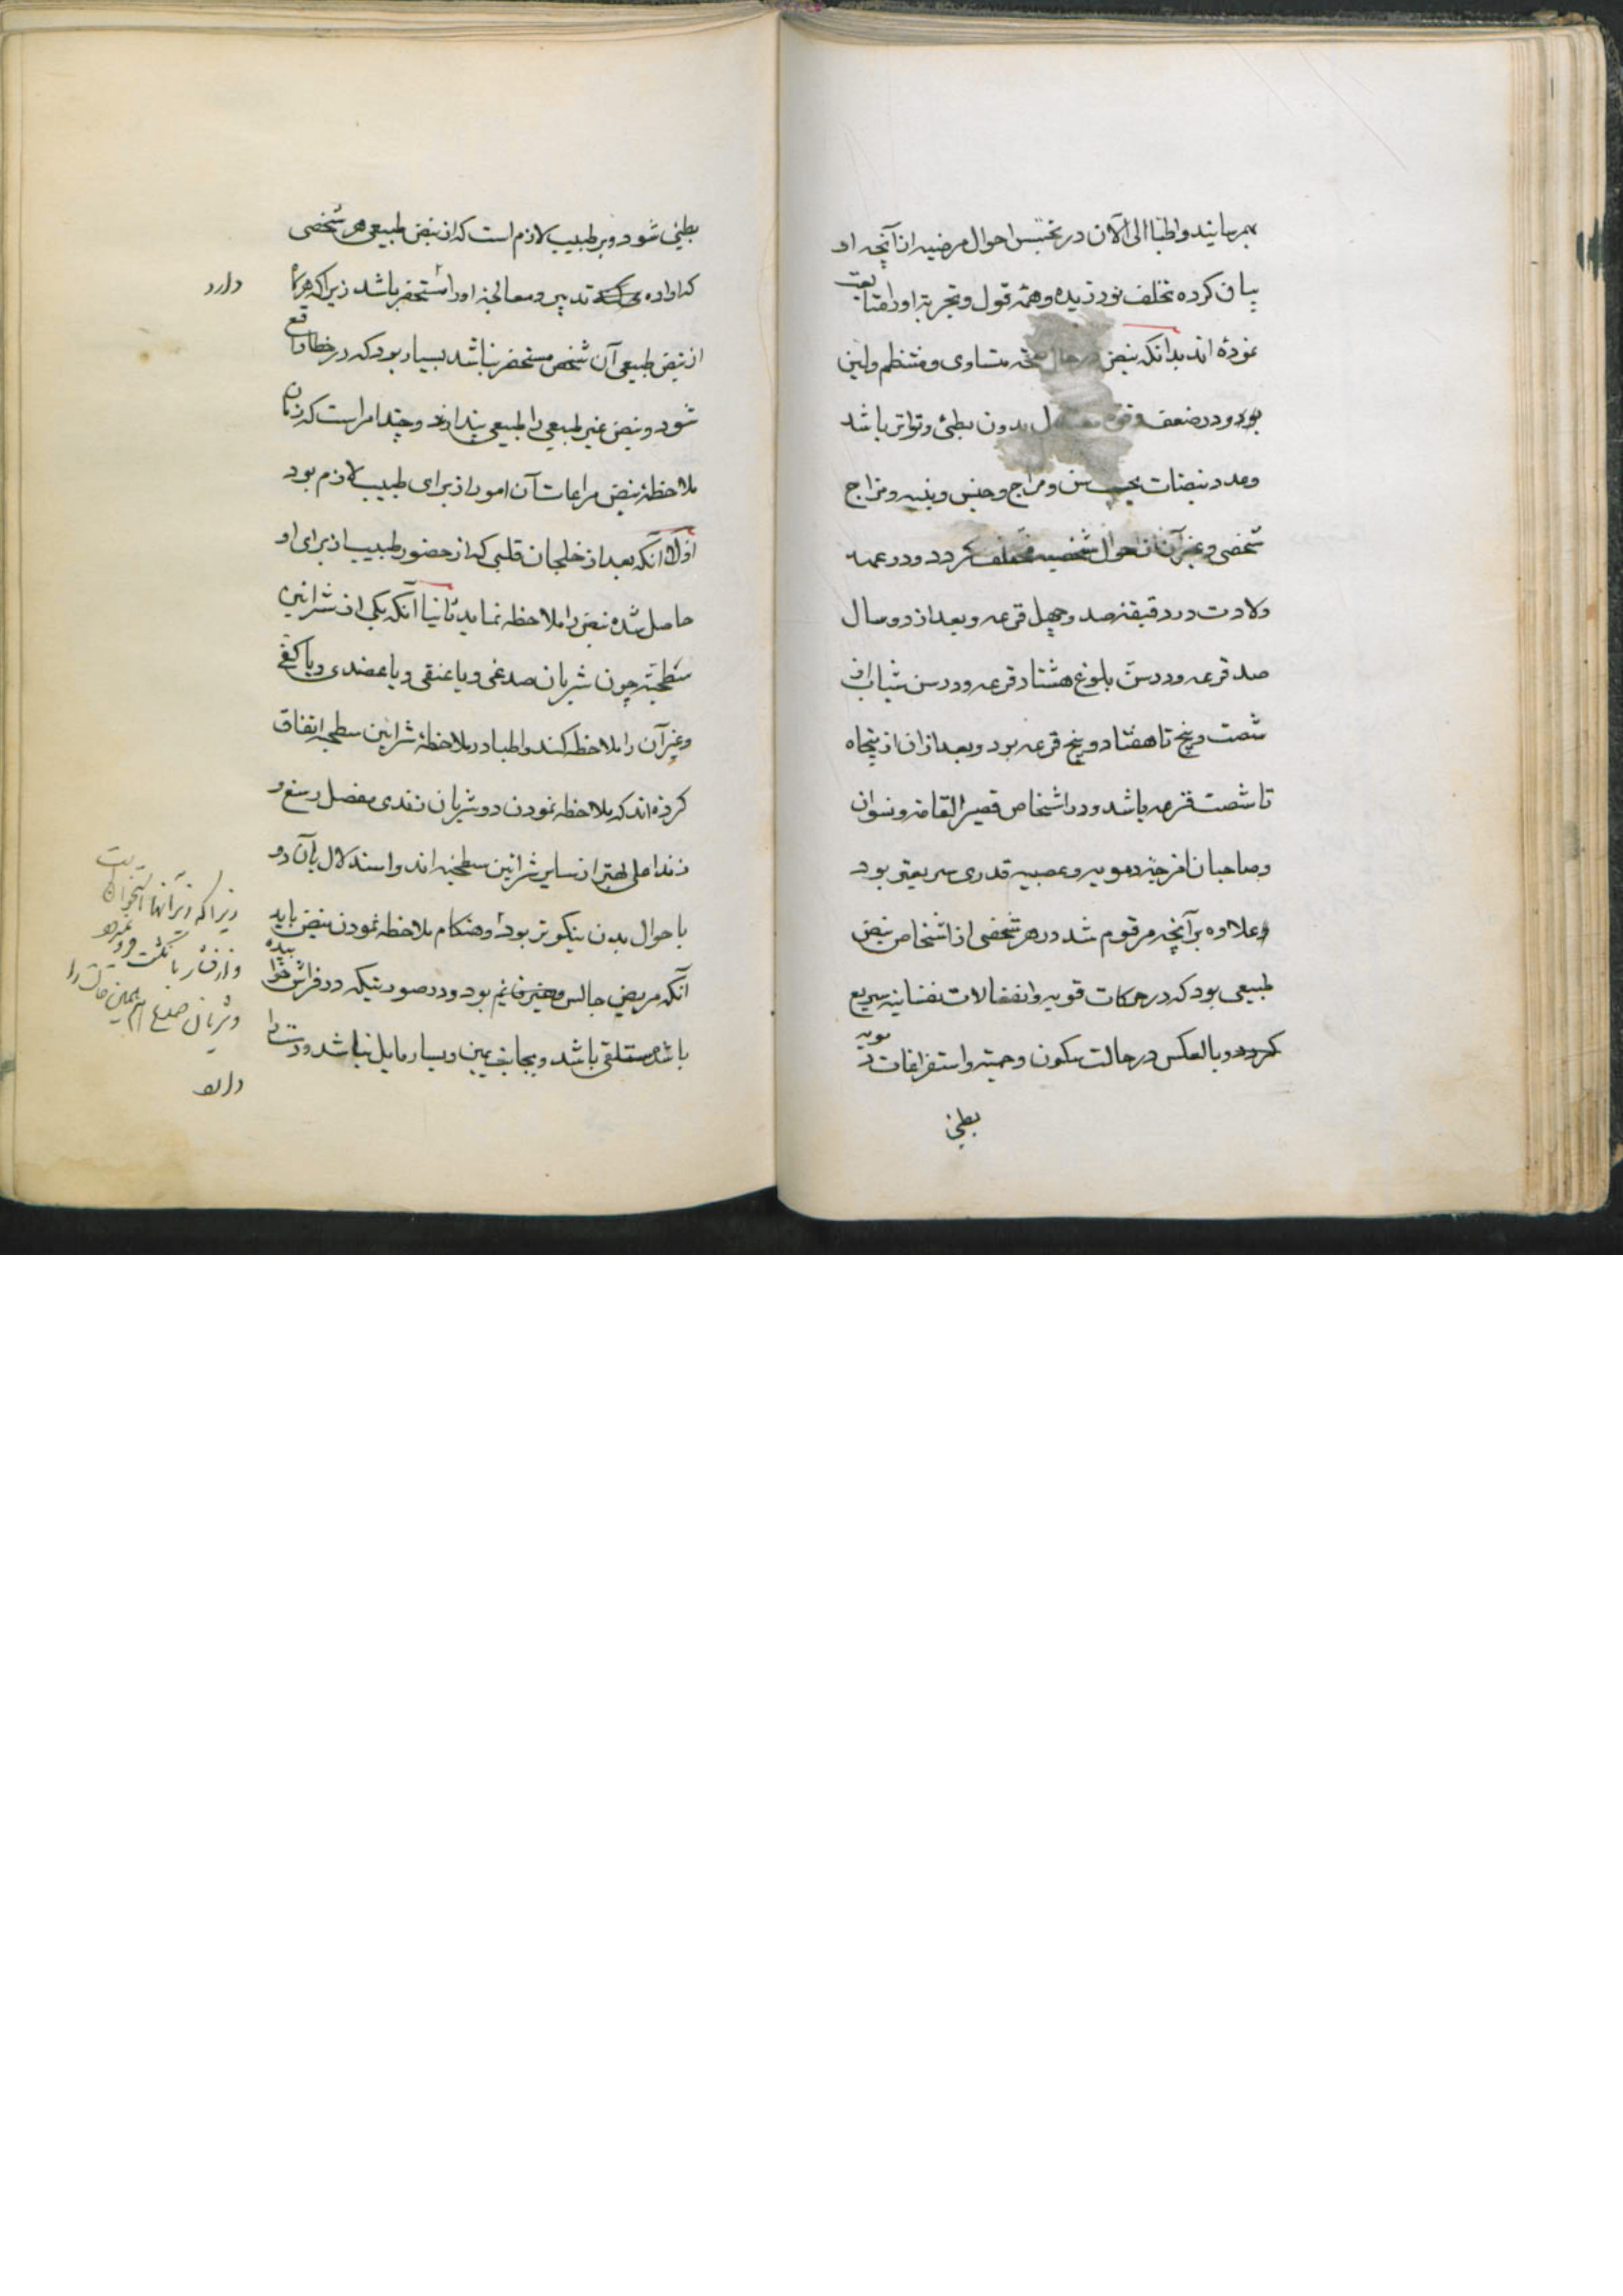 بهرسانید و اطبا الی الآن در تجسس احوال مرضیه از آنچه او
بیان کرده تخلف نورزیده و همه قول و تجربه او را متابعت
نموده اند بدانکه نبض در حال صحة متساوی و منتظم و لین
بود و در ضعف و قوة معتدل بدون بطئ و تواتر باشد
و عدد نبضات بحسب سن و مزاج و جنس و بنیه و مزاج
شخصی و غیر آن از احوال شخصیه مختلف کردد و در عمه
ولادت در دقیقه صد و چهل قرعه و بعد از دو سال
صد قرعه و در سن بلوغ هشتاد قرعه و در سن شباب از
شصت و پنج تا هفتاد و پنج قرعه بود و بعد از ان از پنجاه
تا شصت قرعه باشد و در اشخاص قصیر القامة و نسوان
و صاحبان امزجهٔ دمویه و عصبیه قدری سریعتر بود
و علاوه بر آنچه مرقوم شد در هر شخصی از اشخاص نبض
طبیعی بود که در حرکات قویه و انفعالات نفسانیه سریع
کردد و بالعکس در حالت سکون و حمیه و استفراغات دمویه
بطئ
بطئ شود و بر طبیب لازم است که از نبض طبیعی هر شخصی
که اراده تدبیر و معالجهٔ او را مستحضر باشد زیرا که هرکاه
دارد
از نبض طبیعی آن شخص مستحضر نباشد بسیار بود که در خطا واقع
شود و نبض غیر طبیعی را طبیعی پندارد و چند امر است که زمان
ملاحظهٔ نبض مراعات آن امور از برای طبیب لازم بود
اولا آنکه بعد از خلجان قلبی که از حضور طبیب از برای او
حاصل شده نبض را ملاحظه نماید ثانیا آنکه یکی از شرائین
سطحیه چون شریان صدغی و یا عنقی و یا عضدی و یا کفی
و غیر آن را ملاحظه کند و اطبا در ملاحظهٔ شرائین سطحیه اتفاق
کرده اند که ملاحظه نمودن دو شریان زندی مفصل رسغ و
زند اعلی بهتر از سایر شرائین سطحیه اند و استدلال بآن دو
باحوال بدن نیکوتر بود و هنکام ملاحظه نمودن نبض باید
آنکه مریض جالس و غیر قائم بود و در صورتیکه در فراش خوابیده
باشد مستلقی باشد و بجانب یمین و یسار مایل نباشد و دست را
زیرا که زیر آنها استخوان است
و از فشار بانکشت فرو نمیرود
و شریان صدغ هم همین حالت را
دارد